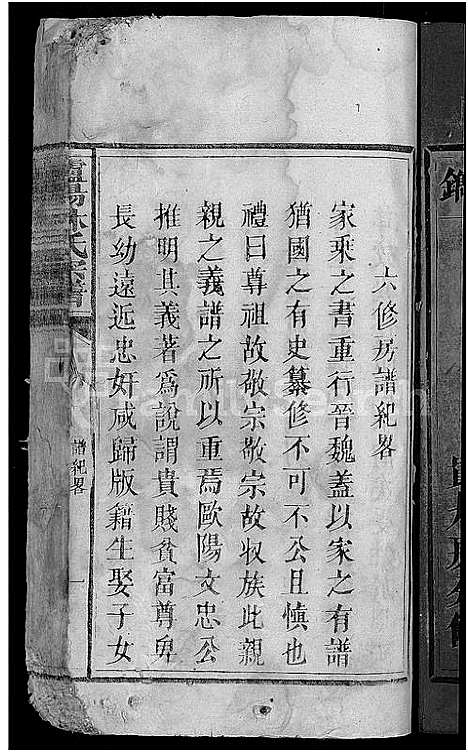 六修房譜紀畧
家乘之書重行晉魏蓋以家之有譜
猶國之有史纂修不可不公且慎也
禮曰尊祖故敬宗敬宗故収族此親
親之義譜之所以重焉歐陽文忠公
推明其義著爲說謂貴賤貧富尊卑
長幼遠近忠奸咸歸版籍生娶子女
林氏宗譜
譜紀畧
一